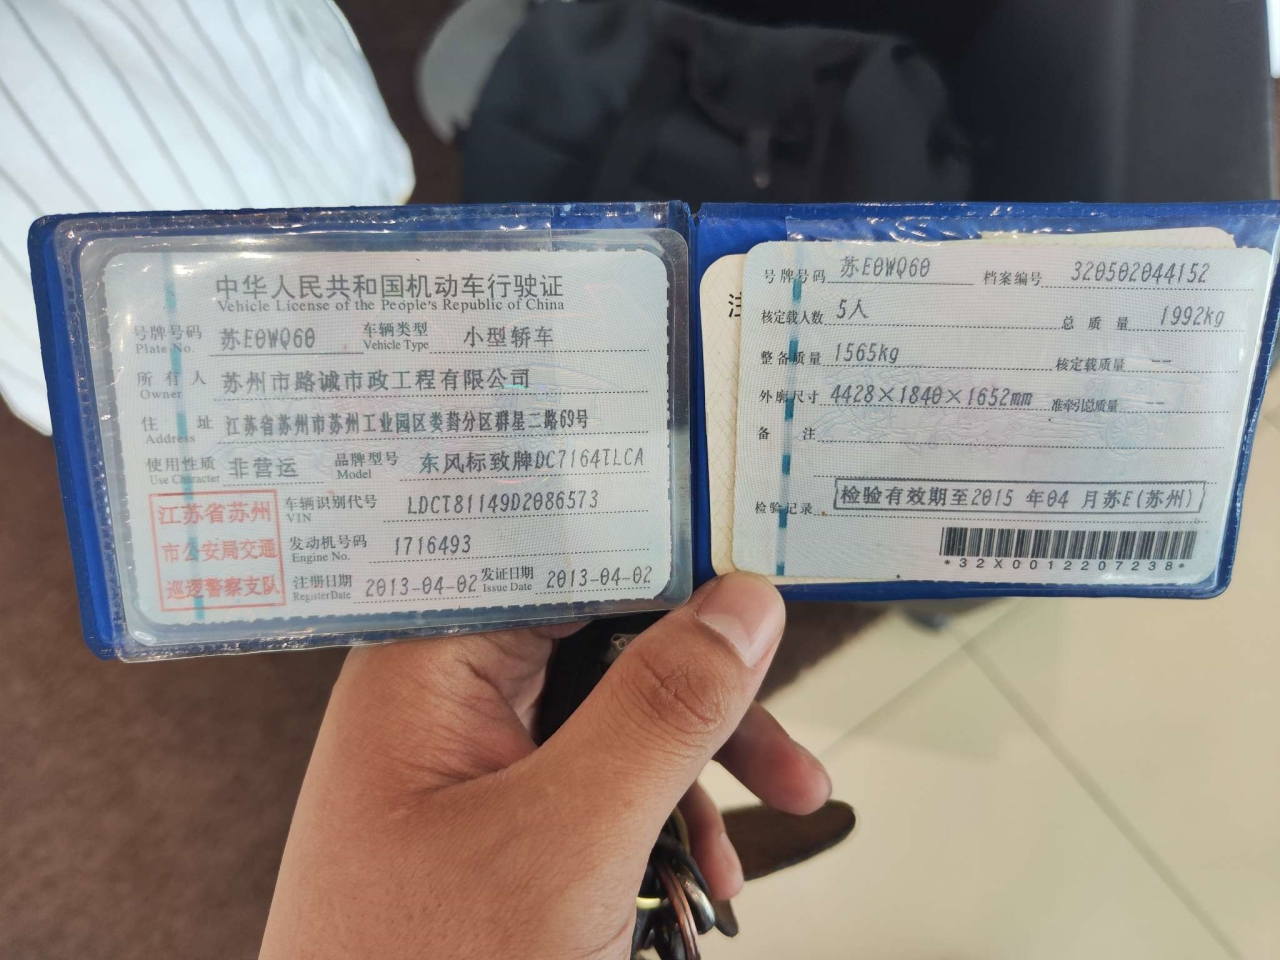 中华人民共和国机动车行驶证
Vehicle License of the People's Republic of China
号牌号码 苏E0WQ60 车辆类型 小型轿车
Plate No. Vehicle Type
所有人 苏州市路诚市政工程有限公司
Owner
住址 江苏省苏州市苏州工业园区娄葑分区群星二路69号
Address
使用性质 非营运 品牌型号 东风标致牌DC7164TLCA
Use Character Model
江苏省苏州
市公安局交通
巡逻警察支队
车辆识别代号 LDCT81149D2086573
VIN
发动机号码 1716493
Engine No.
注册日期 2013-04-02 发证日期 2013-04-02
Register Date Issue Date
号牌号码 苏E0WQ60 档案编号 320502044152
核定载人数 5人 总质量 1992kg
整备质量 1565kg 核定载质量 --
外廓尺寸 4428×1840×1652mm 准牵引总质量 --
备注
检验记录 检验有效期至2015年04月苏E(苏州)
*32X0012207238*